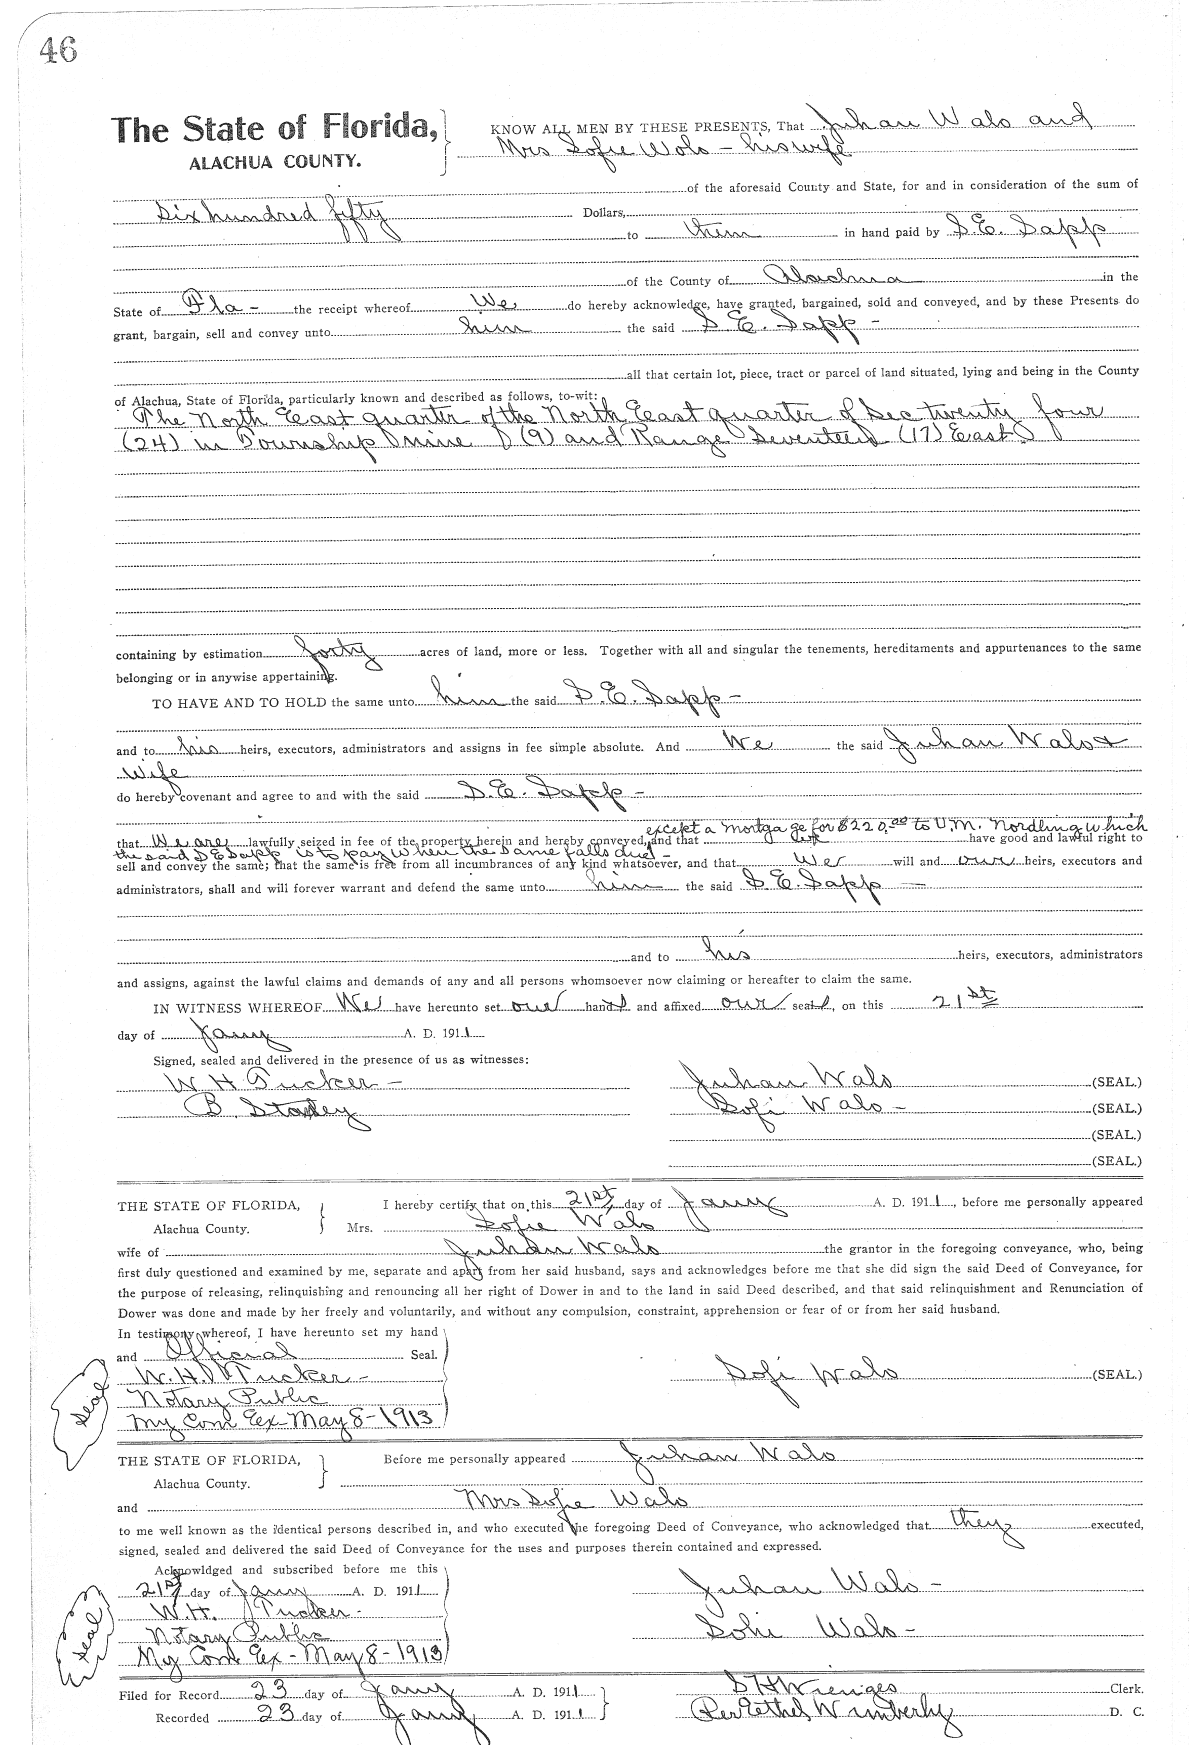 46
The State of Florida,
ALACHUA COUNTY.
KNOW ALL MEN BY THESE PRESENTS, That Juhan Walo and
Mrs Sofie Walo - his wife
of the aforesaid County and State, for and in consideration of the sum of
Six hundred fifty Dollars,
to them in hand paid by S.E. Sapp
of the County of Alachua in the
State of Fla - the receipt whereof We do hereby acknowledge, have granted, bargained, sold and conveyed, and by these Presents do
grant, bargain, sell and convey unto him the said S.E. Sapp -
all that certain lot, piece, tract or parcel of land situated, lying and being in the County
of Alachua, State of Florida, particularly known and described as follows, to-wit:
The North East quarter of the North East quarter of Sec twenty four
(24) in Township nine (9) and Range Seventeen (17) East
containing by estimation forty acres of land, more or less. Together with all and singular the tenements, hereditaments and appurtenances to the same
belonging or in anywise appertaining.
TO HAVE AND TO HOLD the same unto him the said S.E. Sapp -
and to his heirs, executors, administrators and assigns in fee simple absolute. And We the said Juhan Walo &
Wife
do hereby covenant and agree to and with the said S.E. Sapp -
except a mortgage for $220.00 to V.M. Nordling which
that We are lawfully seized in fee of the property herein and hereby conveyed, and that have good and lawful right to
the said S E Sapp is to pay when the same falls due -
sell and convey the same; that the same is free from all incumbrances of any kind whatsoever, and that We will and our heirs, executors and
administrators, shall and will forever warrant and defend the same unto him the said S.E. Sapp -
and to his heirs, executors, administrators
and assigns, against the lawful claims and demands of any and all persons whomsoever now claiming or hereafter to claim the same.
IN WITNESS WHEREOF We have hereunto set our hands and affixed our seals, on this 21st
day of Jany A. D. 1911
Signed, sealed and delivered in the presence of us as witnesses:
W H Tucker - Juhan Walo (SEAL.)
B. Stanley Sofi Walo - (SEAL.)
(SEAL.)
(SEAL.)
THE STATE OF FLORIDA, I hereby certify that on this 21st day of Jany A. D. 1911, before me personally appeared
Alachua County. Mrs. Sofie Walo
wife of Juhan Walo the grantor in the foregoing conveyance, who, being
first duly questioned and examined by me, separate and apart from her said husband, says and acknowledges before me that she did sign the said Deed of Conveyance, for
the purpose of releasing, relinquishing and renouncing all her right of Dower in and to the land in said Deed described, and that said relinquishment and Renunciation of
Dower was done and made by her freely and voluntarily, and without any compulsion, constraint, apprehension or fear of or from her said husband.
In testimony whereof, I have hereunto set my hand
and Official Seal.
W.H. Tucker - Sofi Walo (SEAL.)
Seal
Notary Public
My Com Ex - May 8 - 1913
THE STATE OF FLORIDA, Before me personally appeared Juhan Walo
Alachua County.
and Mrs Sofie Walo
to me well known as the identical persons described in, and who executed the foregoing Deed of Conveyance, who acknowledged that they executed,
signed, sealed and delivered the said Deed of Conveyance for the uses and purposes therein contained and expressed.
Acknowldged and subscribed before me this
21st day of Jany A. D. 1911 Juhan Walo -
W.H. Tucker -
Seal
Notary Public Sohi Walo -
My Com Ex - May 8 - 1913
Filed for Record 23 day of Jany A. D. 1911 S H Wienges Clerk.
Recorded 23 day of Jany A. D. 1911 Per Ethel Wimberly D. C.